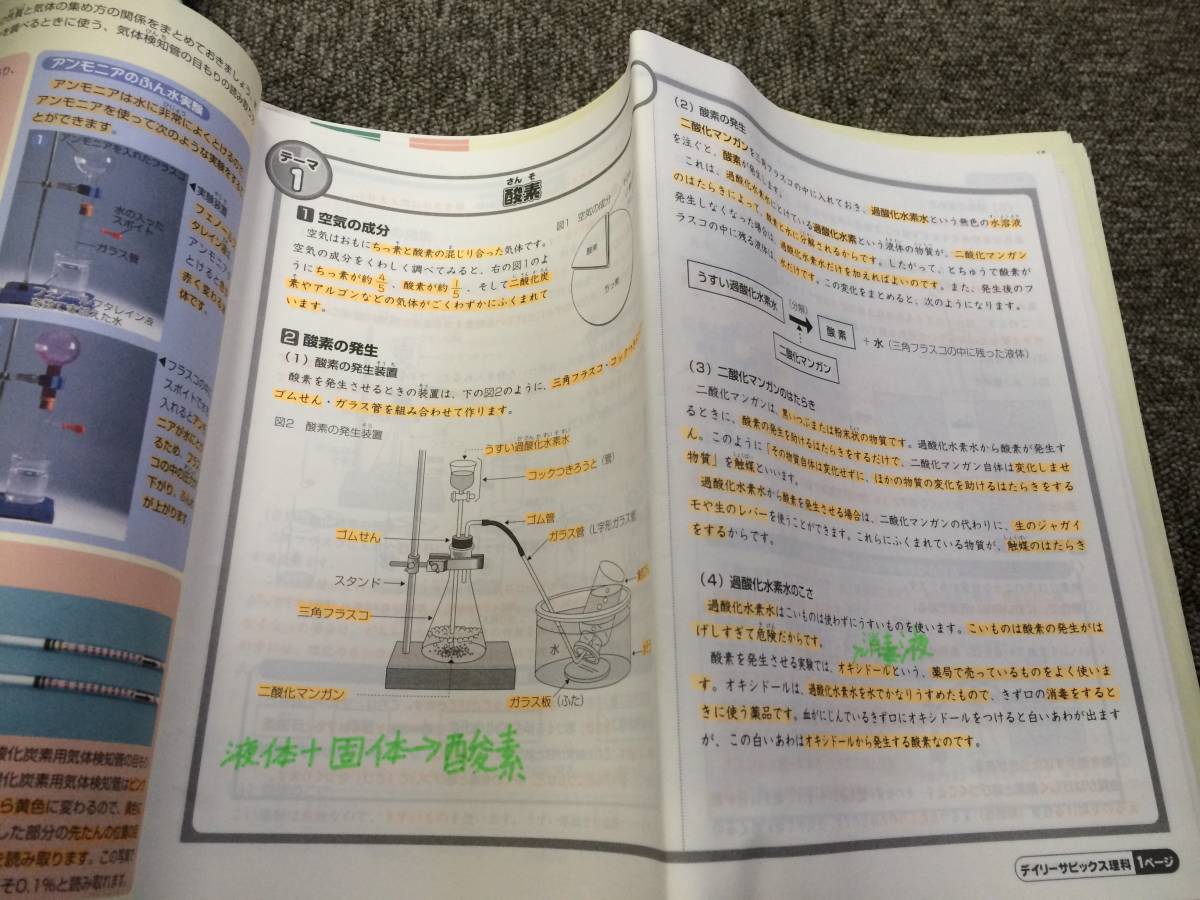 の性質と気体の集め方の関係をまとめておきましょう。
を調べるときに使う、気体検知管の目もりの読み取
アンモニアのふん水実験
アンモニアは水に非常によくとけるので、
アンモニアを使って次のような実験をするこ
とができます。
1
アンモニアを入れたフラスコ
水の入った
スポイト
ガラス管
フェノールフタレイン液
を加えた水
◀実験装置
フェノール
タレイン液
アンモニア
とけると
赤く変わる
体です。
◀フラスコの中
スポイトで水
入れるとアン
ニアが水にと
るため、フラ
コの中の圧力
下がり、ふん水
が上がります
酸化炭素用気体検知管の目も
酸化炭素用気体検知管はピン
ら黄色に変わるので、黄色に
した部分の先たんの位置の目
を読み取ります。この写真で
そ0.1%と読み取れます。
テーマ
1
さんそ
酸素
1 空気の成分
空気はおもにちっ素と酸素の混じり合った気体です。
空気の成分をくわしく調べてみると、右の図1のよ
うにちっ素が約4/5、酸素が約1/5、そして二酸化炭
素やアルゴンなどの気体がごくわずかにふくまれて
います。
図1 空気の成分
酸素
ちっ素
2 酸素の発生
(1) 酸素の発生装置
酸素を発生させるときの装置は、下の図2のように、三角フラスコ・コックつき
ゴムせん・ガラス管を組み合わせて作ります。
図2 酸素の発生装置
うすい過酸化水素水
コックつきろうと(管)
ゴム管
ガラス管(L字形ガラス管
ゴムせん
スタンド
三角フラスコ
水
二酸化マンガン
ガラス板(ふた)
液体+固体→酸素
(2) 酸素の発生
二酸化マンガンを三角フラスコの中に入れておき、過酸化水素水という無色の水溶液
を注ぐと、酸素が発生します。
これは、過酸化水素水にとけている過酸化水素という液体の物質が、二酸化マンガン
のはたらきによって、酸素と水に分解されるからです。したがって、とちゅうで酸素が
発生しなくなった場合は、過酸化水素水だけを加えればよいのです。また、発生後のフ
ラスコの中に残る液体は、水だけです。この変化をまとめると、次のようになります。
うすい過酸化水素水
(分解)
酸素
+ 水(三角フラスコの中に残った液体)
二酸化マンガン
(3) 二酸化マンガンのはたらき
二酸化マンガンは、黒いつぶまたは粉末状の物質です。過酸化水素水から酸素が発生す
るときに、酸素の発生を助けるはたらきをするだけで、二酸化マンガン自体は変化しませ
ん。このように「その物質自体は変化せずに、ほかの物質の変化を助けるはたらきをする
物質」を触媒といいます。
過酸化水素水から酸素を発生させる場合は、二酸化マンガンの代わりに、生のジャガイ
モや生のレバーを使うことができます。これらにふくまれている物質が、触媒のはたらき
をするからです。
(4) 過酸化水素水のこさ
過酸化水素水はこいものは使わずにうすいものを使います。こいものは酸素の発生がは
げしすぎて危険だからです。
消毒液
酸素を発生させる実験では、オキシドールという、薬局で売っているものをよく使いま
す。オキシドールは、過酸化水素水を水でかなりうすめたもので、きず口の消毒をすると
きに使う薬品です。血がにじんでいるきず口にオキシドールをつけると白いあわが出ます
が、この白いあわはオキシドールから発生する酸素なのです。
デイリーサピックス理科 1ページ